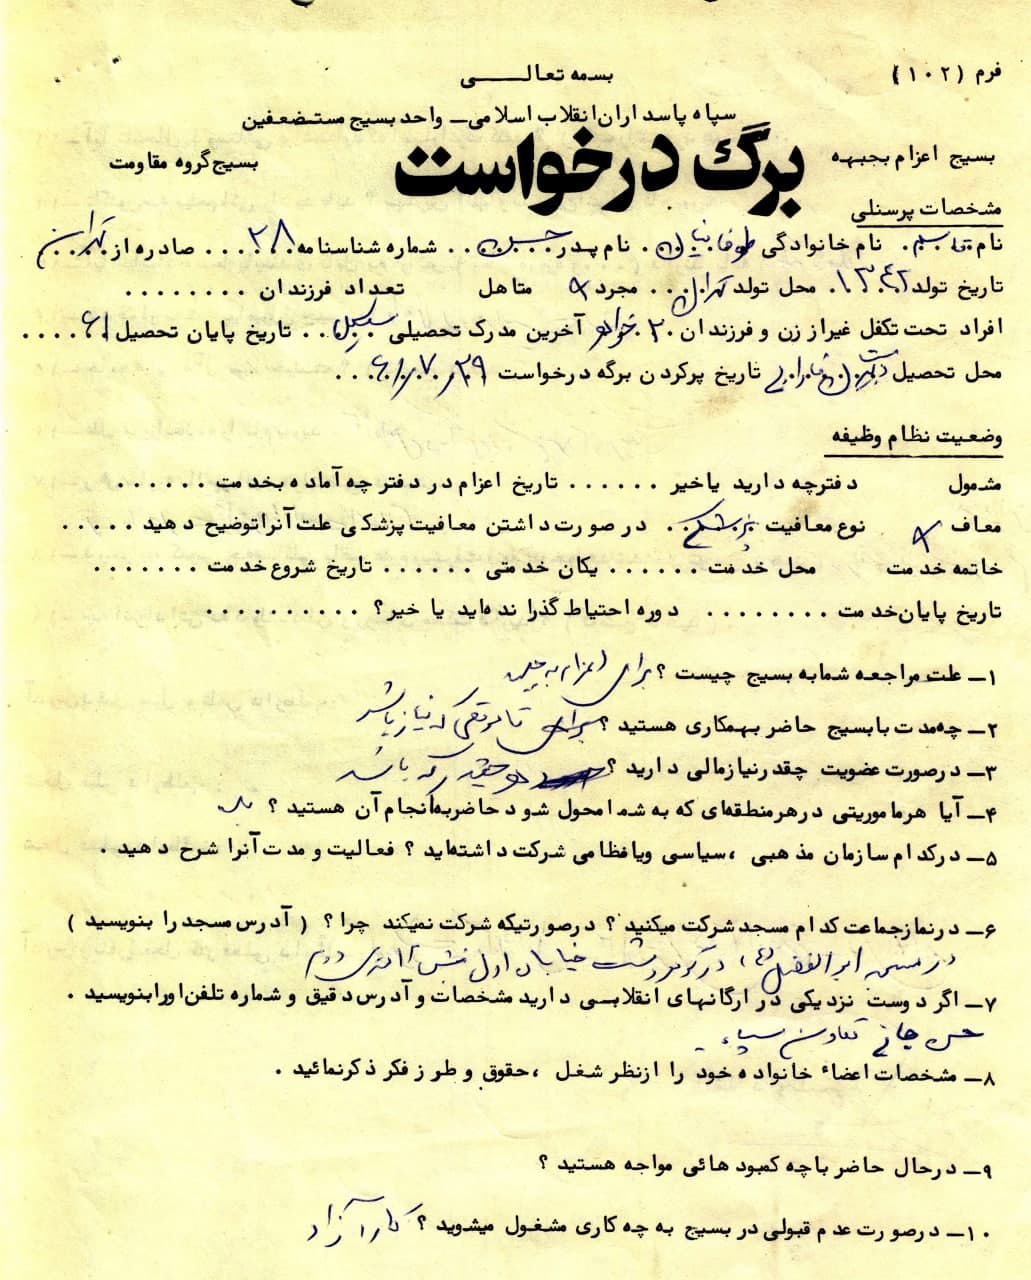 فرم (۱۰۲)
بسمه تعالی
سپاه پاسداران انقلاب اسلامی ـ واحد بسیج مستضعفین
بسیج اعزام بجبهه
برگ درخواست
بسیج گروه مقاومت
مشخصات پرسنلی
نام . نام خانوادگی طوفانیان . نام پدر حسین . . شماره شناسنامه ۲۸ . . . صادره از تهران
تاریخ تولد ۱۳۴۲ . محل تولد تهران . . . مجرد متاهل تعداد فرزندان . . . . . . . .
افراد تحت تکفل غیر از زن و فرزندان ۲ خواهر آخرین مدرک تحصیلی سیکل . . تاریخ پایان تحصیل ۶۱ . . . . .
محل تحصیل تاریخ پرکردن برگه درخواست ۲۹ر۷ر۶۱ . . .
وضعیت نظام وظیفه
مشمول دفترچه دارید یاخیر . . . . . . تاریخ اعزام در دفترچه آماده بخدمت . . . . . .
معاف نوع معافیت پزشکی . . در صورت داشتن معافیت پزشکی علت آنرا توضیح دهید . . . . .
خاتمه خدمت محل خدمت . . . . . . یکان خدمتی . . . . . . تاریخ شروع خدمت . . . . . . .
تاریخ پایان خدمت . . . . . . . . دوره احتیاط گذرانده‌اید یا خیر؟ . . . . . . . . . .
۱ـ علت مراجعه شما به بسیج چیست ؟ برای اعزام به جبهه
۲ـ چه مدت با بسیج حاضر بهمکاری هستید ؟ برای تا موقعی که نیاز باشد
۳ـ در صورت عضویت چقدر نیاز مالی دارید ؟ هر چقدر که باشد
۴ـ آیا هر ماموریتی در هر منطقه‌ای که به شما محول شود حاضر به انجام آن هستید ؟ بله
۵ـ در کدام سازمان مذهبی ، سیاسی و یا نظامی شرکت داشته‌اید ؟ فعالیت و مدت آنرا شرح دهید .
۶ـ در نماز جماعت کدام مسجد شرکت میکنید ؟ در صورتیکه شرکت نمیکند چرا ؟ ( آدرس مسجد را بنویسید )
در مسجد ابوالفضل (ع) در خیابان اول
۷ـ اگر دوست نزدیکی در ارگانهای انقلابی دارید مشخصات و آدرس دقیق و شماره تلفن او را بنویسید .
تعاون سپاه
۸ـ مشخصات اعضاء خانواده خود را از نظر شغل ، حقوق و طرز فکر ذکر نمائید .
۹ـ در حال حاضر با چه کمبودهائی مواجه هستید ؟
۱۰ـ در صورت عدم قبولی در بسیج به چه کاری مشغول میشوید ؟ کار آزاد